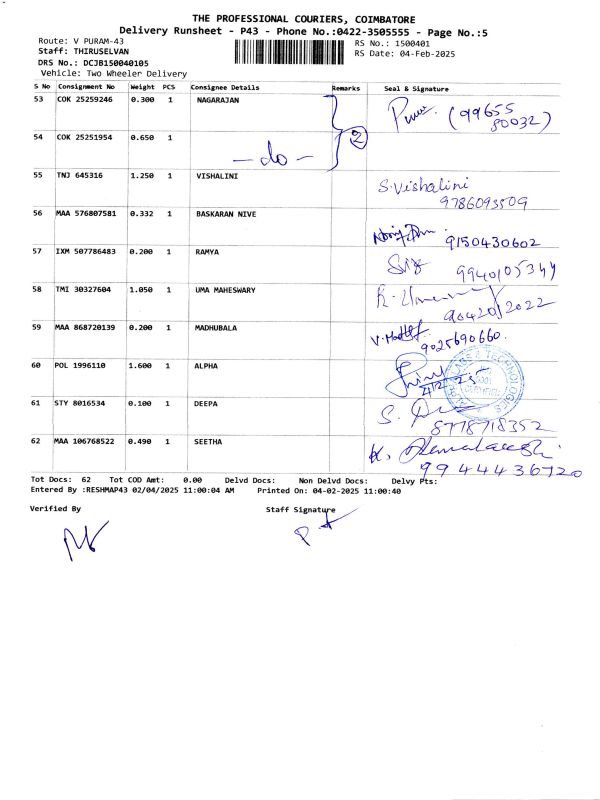 THE PROFESSIONAL COURIERS, COIMBATORE
Delivery Runsheet - P43 - Phone No.:0422-3505555 - Page No.:5
Route: V PURAM-43
RS No.: 1500401
Staff: THIRUSELVAN
RS Date: 04-Feb-2025
DRS No.: DCJB150040105
Vehicle: Two Wheeler Delivery
S No Consignment No Weight PCS Consignee Details Remarks Seal & Signature
53 COK 25259246 0.300 1 NAGARAJAN (99655
80032)
54 COK 25251954 0.650 1 2
- do -
55 TNJ 645316 1.250 1 VISHALINI S.Vishalini
9786093509
56 MAA 576807581 0.332 1 BASKARAN NIVE
9150430602
57 IXM 507786483 0.200 1 RAMYA
58 TMI 30327604 1.050 1 UMA MAHESWARY
59 MAA 868720139 0.200 1 MADHUBALA
9025690660.
60 POL 1996110 1.600 1 ALPHA
61 STY 8016534 0.100 1 DEEPA S.
8778718352
62 MAA 106768522 0.490 1 SEETHA
9944436720
Tot Docs: 62 Tot COD Amt: 0.00 Delvd Docs: Non Delvd Docs: Delvy Pts:
Entered By :RESHMAP43 02/04/2025 11:00:04 AM Printed On: 04-02-2025 11:00:40
Verified By Staff Signature